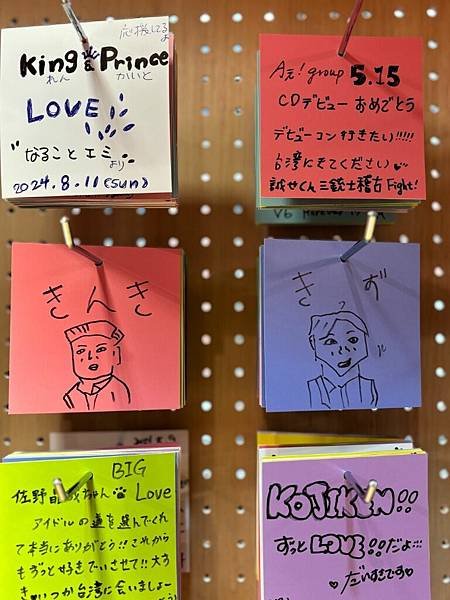 応援してる
よ
King & Prince
れん かいと
LOVE
なるこ と エミ
より
2024.8.11(sun)
Aえ! group 5.15
CDデビュー おめでとう
デビューコン行きたい!!!!!
台湾にきてください
誠せくん三銃士稽古Fight!
V6
きんき
きず
BIG
佐野晶哉ちゃん Love
アイドルの道を選んでくれ
て本当にありがとう!!これから
もずっと好きでいさせて!!大す
き♥いつか台湾に会いましょー
KOJIKEN!!
ずっとLOVE!!だよ…
♡だいすきです♥